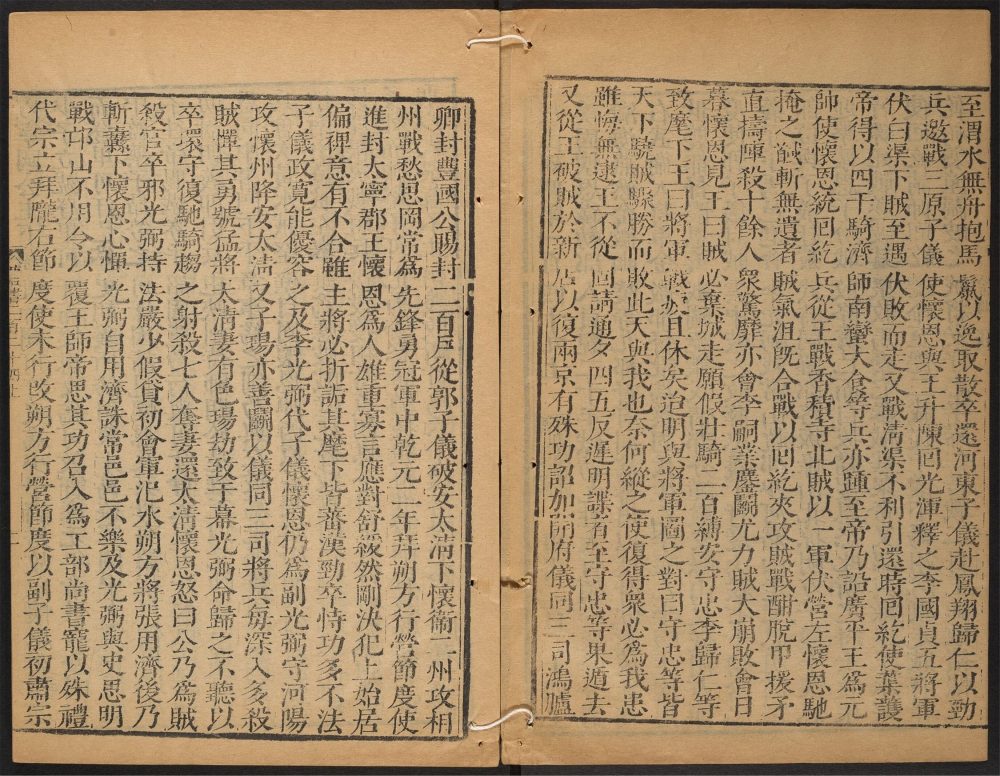 至渭水無舟抱馬鬣以逸取散卒還河東子儀赴鳳翔歸仁以勁
兵邀戰三原子儀使懷恩與王升陳回光渾釋之李國貞五將軍
伏白渠下賊至遇伏敗而走又戰清渠不利引還時回紇使葉護
帝得以四千騎濟師南蠻大食等兵亦踵至帝乃詔廣平王為元
帥使懷恩統回紇兵從王戰香積寺北賊以一軍伏營左懷恩馳
掩之馘斬無遺者賊氣沮既合戰以回紇夾攻賊戰酣脫甲援矛
直擣陣殺十餘人衆驚靡亦會李嗣業鏖鬬尤力賊大崩敗會日
暮懷恩見王曰賊必棄城走願假壯騎二百縛安守忠李歸仁等
致麾下王曰將軍戰疲且休矣迨明與將軍圖之對曰守忠等皆
天下驍賊驟勝而敗此天與我也奈何縱之使復得衆必為我患
雖悔無逮王不從固請通夕四五反遲明諜者至守忠等果遁去
又從王破賊於新店以復兩京有殊功詔加開府儀同三司鴻臚
卿封豐國公賜封二百戶從郭子儀破安太淸下懷衞二州攻相
州戰愁思岡常為先鋒勇冠軍中乾元二年拜朔方行營節度使
進封大寧郡王懷恩為人雄重寡言應對舒緩然剛決犯上始居
偏裨意有不合雖主將必折詬其麾下皆蕃漢勁卒恃功多不法
子儀政寬能優容之及李光弼代子儀懷恩仍為副光弼守河陽
攻懷州降安太淸又子瑒亦善鬬以儀同三司將兵每深入多殺
賊憚其勇號猛將太清妻有色瑒劫致于幕光弼命歸之不聽以
卒環守復馳騎趨之射殺七人奪妻還太清懷恩怒曰公乃為賊
殺官卒邪光弼持法嚴少假貸初會軍汜水朔方將張用濟後乃
斬纛下懷恩心憚光弼自用濟誅常邑邑不樂及光弼與史思明
戰邙山不用令以覆王師帝思其功召入為工部尚書寵以殊禮
代宗立拜隴右節度使未行改朔方行營節度以副子儀初肅宗